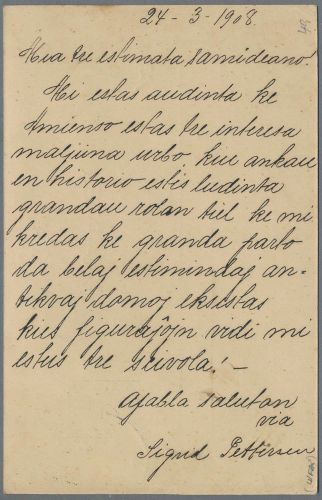 24-3-1908.
Mia tre estimata samideano!
Mi estas audinta ke
Amienso estas tre interesa
maljuna urbo, kiu ankau
en historio estis ludinta
grandan rolan tiel ke mi
kredas ke granda parto
da belaj estimindaj an-
tikvaj domoj eksistas
kies figuraĵojn vidi mi
estus tre scivola! -
Afabla salutan
via
Sigrid Pettersen